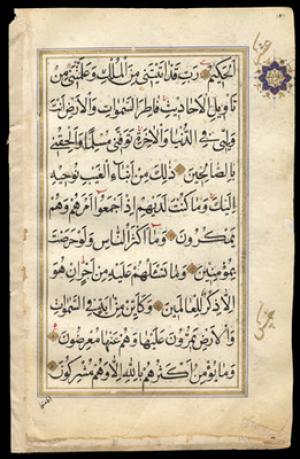 الْحَكِيمُ رَبِّ قَدْ آتَيْتَنِي مِنَ الْمُلْكِ وَعَلَّمْتَنِي مِنْ
تَأْوِيلِ الْأَحَادِيثِ فَاطِرَ السَّمٰوَاتِ وَالْأَرْضِ أَنْتَ
وَلِيِّي فِي الدُّنْيَا وَالْآخِرَةِ تَوَفَّنِي مُسْلِمًا وَأَلْحِقْنِي
بِالصَّالِحِينَ ذٰلِكَ مِنْ أَنْبَاءِ الْغَيْبِ نُوحِيهِ
إِلَيْكَ وَمَا كُنْتَ لَدَيْهِمْ إِذْ أَجْمَعُوا أَمْرَهُمْ وَهُمْ
يَمْكُرُونَ وَمَا أَكْثَرُ النَّاسِ وَلَوْ حَرَصْتَ
بِمُؤْمِنِينَ وَمَا تَسْأَلُهُمْ عَلَيْهِ مِنْ أَجْرٍ إِنْ هُوَ
إِلَّا ذِكْرٌ لِلْعَالَمِينَ وَكَأَيِّنْ مِنْ آيَةٍ فِي السَّمٰوَاتِ
وَالْأَرْضِ يَمُرُّونَ عَلَيْهَا وَهُمْ عَنْهَا مُعْرِضُونَ
وَمَا يُؤْمِنُ أَكْثَرُهُمْ بِاللّٰهِ إِلَّا وَهُمْ مُشْرِكُونَ